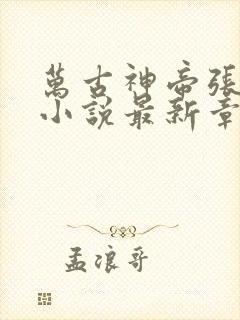 萬古神帝張
小說最新章
孟浪哥